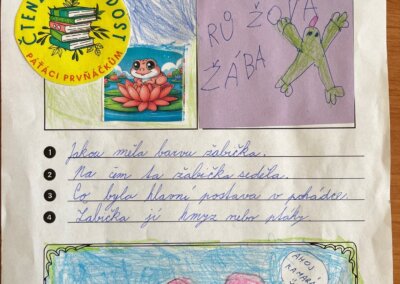 ČTEN DOST
PÁŤÁCI PRVŇÁČKŮM
RŮŽOVÁ
ŽÁBA
1 Jakou měla barvu žabička.
2 Na čem ta žabička seděla.
3 Co byla hlavní postava v pohádce.
4 Žabička jí hmyz nebo ptáky.
AHOJ